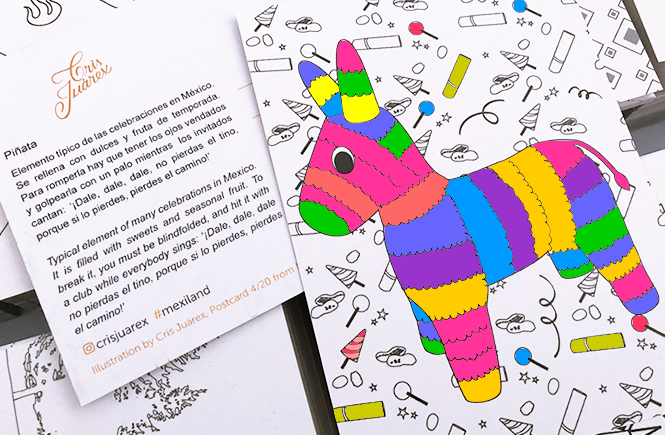 Cris
Juárex
Piñata
Elemento típico de las celebraciones en México.
Se rellena con dulces y fruta de temporada.
Para romperla hay que tener los ojos vendados
y golpearla con un palo mientras los invitados
cantan: '¡Dale, dale, dale, no pierdas el tino,
porque si lo pierdes, pierdes el camino!'
Typical element of many celebrations in Mexico.
It is filled with sweets and seasonal fruit. To
break it, you must be blindfolded, and hit it with
a club while everybody sings: '¡Dale, dale, dale
no pierdas el tino, porque si lo pierdes, pierdes
el camino!'
crisjuarex #mexiland
Illustration by Cris Juárex, Postcard 4/20 from